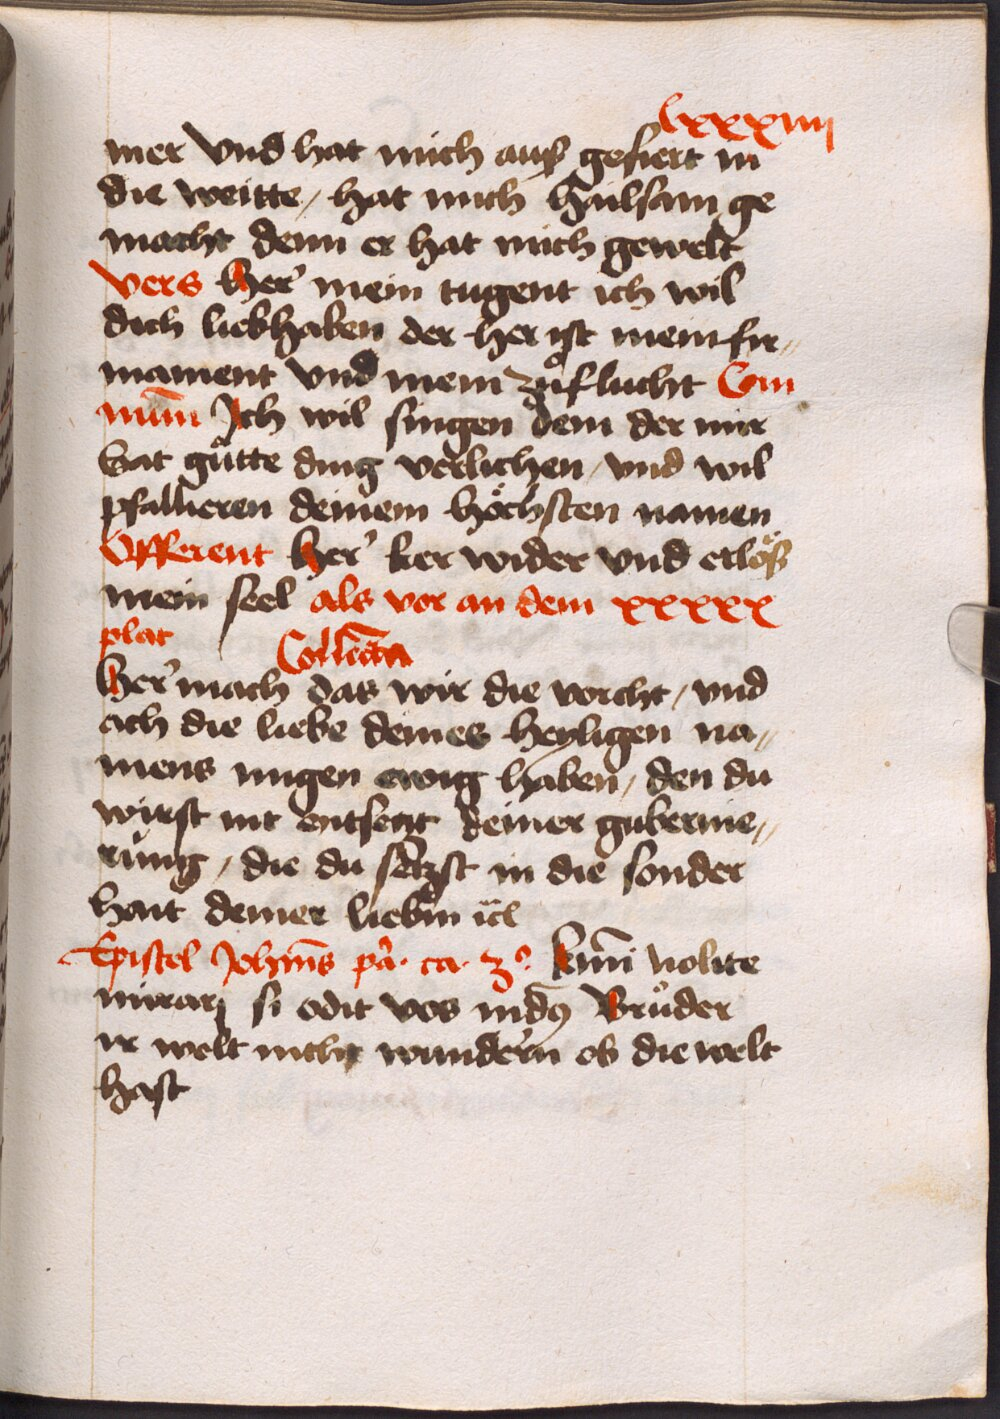 lxxxiiii
mer Vnd hat mich auß gefiert in
die weitte / hat mich hailsam ge
macht denn er hat mich gewelt
Vers her' mein tugent ich wil
dich liebhaben der her ist mein fir„
mament vnd mein zůflucht Com
mūm Ich wil singen dem der mir
hat gůtte ding verlichen / vnd wil
psallieren deinem höchsten namen
Offerent her' ker wider vnd erlöß
mein seel als vor an dem xxxxx
plat
Collecta
her' mach das wir die vorcht / vnd
ach die liebe deines heyligen na„
mens migen ewig haben / den du
wirst nit entsetzt deiner gubernie„
rūng / die du setzst in die sonder
hait deiner liebin ꝛcl
Epistel Joh̄ns pa̔. ca. 3° km̄i nolite
mirarj si odit vos md̄ꝰ Brůder
ir welt nicht wundern ob die welt
hast